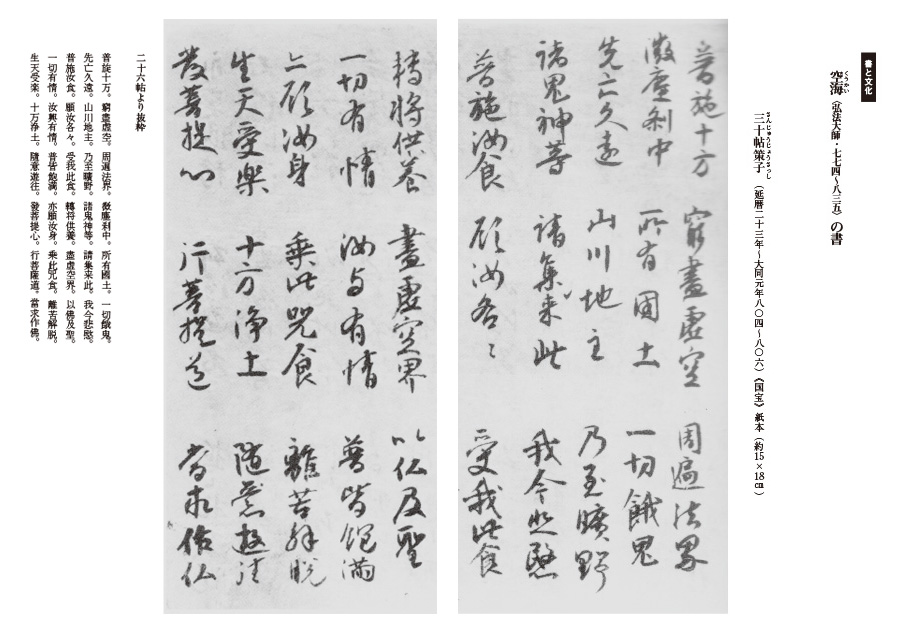 書と文化
くうかい
空海（弘法大師・七七四～八三五）の書
さんじゅうじょうさっし
三十帖策子（延暦二十三年～大同元年八〇四～八〇六）《国宝》紙本（約15×18㎝）
普施十方 窮盡虚空 周遍法界
微塵刹中 所有國土 一切餓鬼
先亡久遠 山川地主 乃至曠野
諸鬼神等 請集来此 我今悲愍
普施汝食 願汝各々 受我此食
轉將供養 盡虚空界 以仏及聖
一切有情 汝与有情 普皆飽満
亦願汝身 乗此咒食 離苦解脱
生天受樂 十方浄土 随意遊往
發菩提心 行菩提道 當求作仏
二十六帖より抜粋
普旋十方。窮盡虚空。周遍法界。微塵利中。所有國土。一切餓鬼。
先亡久遠。山川地主。乃至曠野。諸鬼神等。請集来此。我今悲愍。
普施汝食。願汝各々。受我此食。轉将供養。盡虚空界。以佛及聖。
一切有情。汝與有情。普皆飽満。亦願汝身。乘此咒食。離苦解脱。
生天受楽。十万浄土。隨意遊往。發菩提心。行菩薩道。當求作佛。